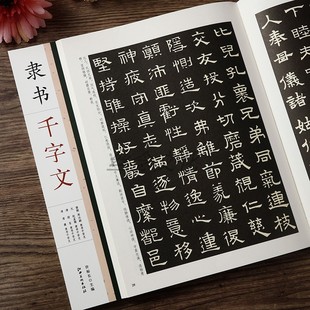 隶书
千字文
下睦夫
入奉母儀諸姑
比兒孔懷兄弟同氣連枝
交友投分切磨箴規仁慈
隱惻造次弗離節義廉退
顛沛匪虧性靜情逸心動
神疲守真志滿逐物意移
堅持雅操好爵自縻都邑